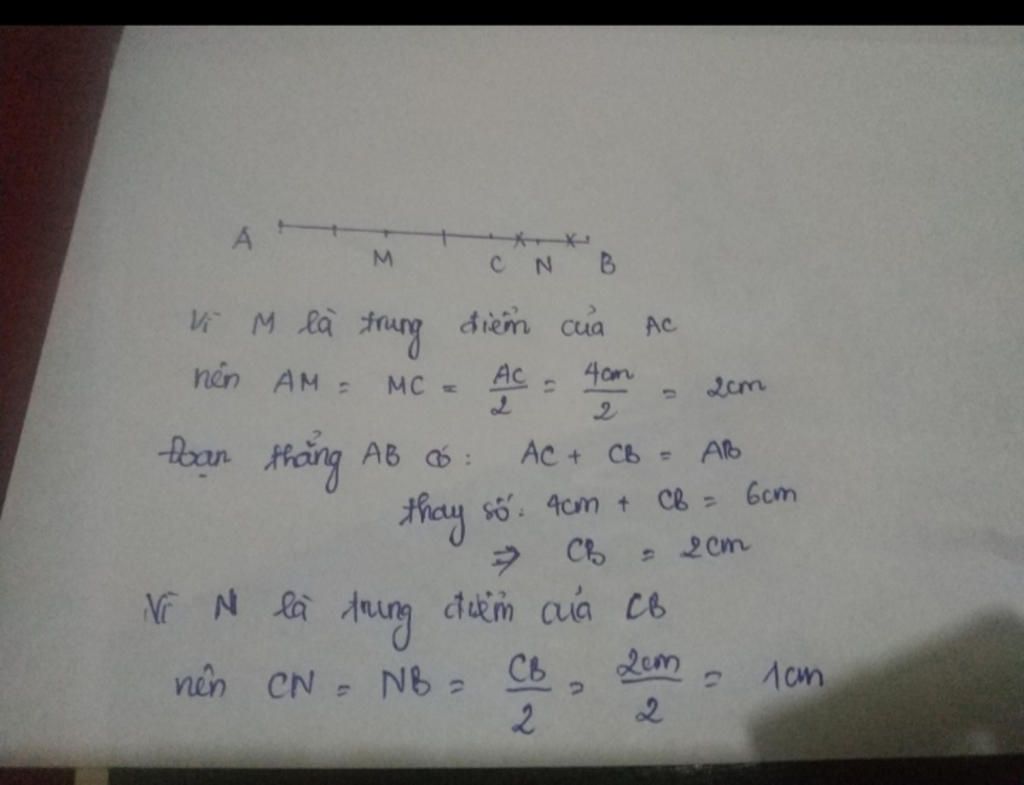 A M C N B
Vì M là trung điểm của AC
nên AM = MC = AC/2 = 4cm/2 = 2cm
Đoạn thẳng AB có: AC + CB = AB
thay số: 4cm + CB = 6cm
⇒ CB = 2cm
Vì N là trung điểm của CB
nên CN = NB = CB/2 = 2cm/2 = 1cm